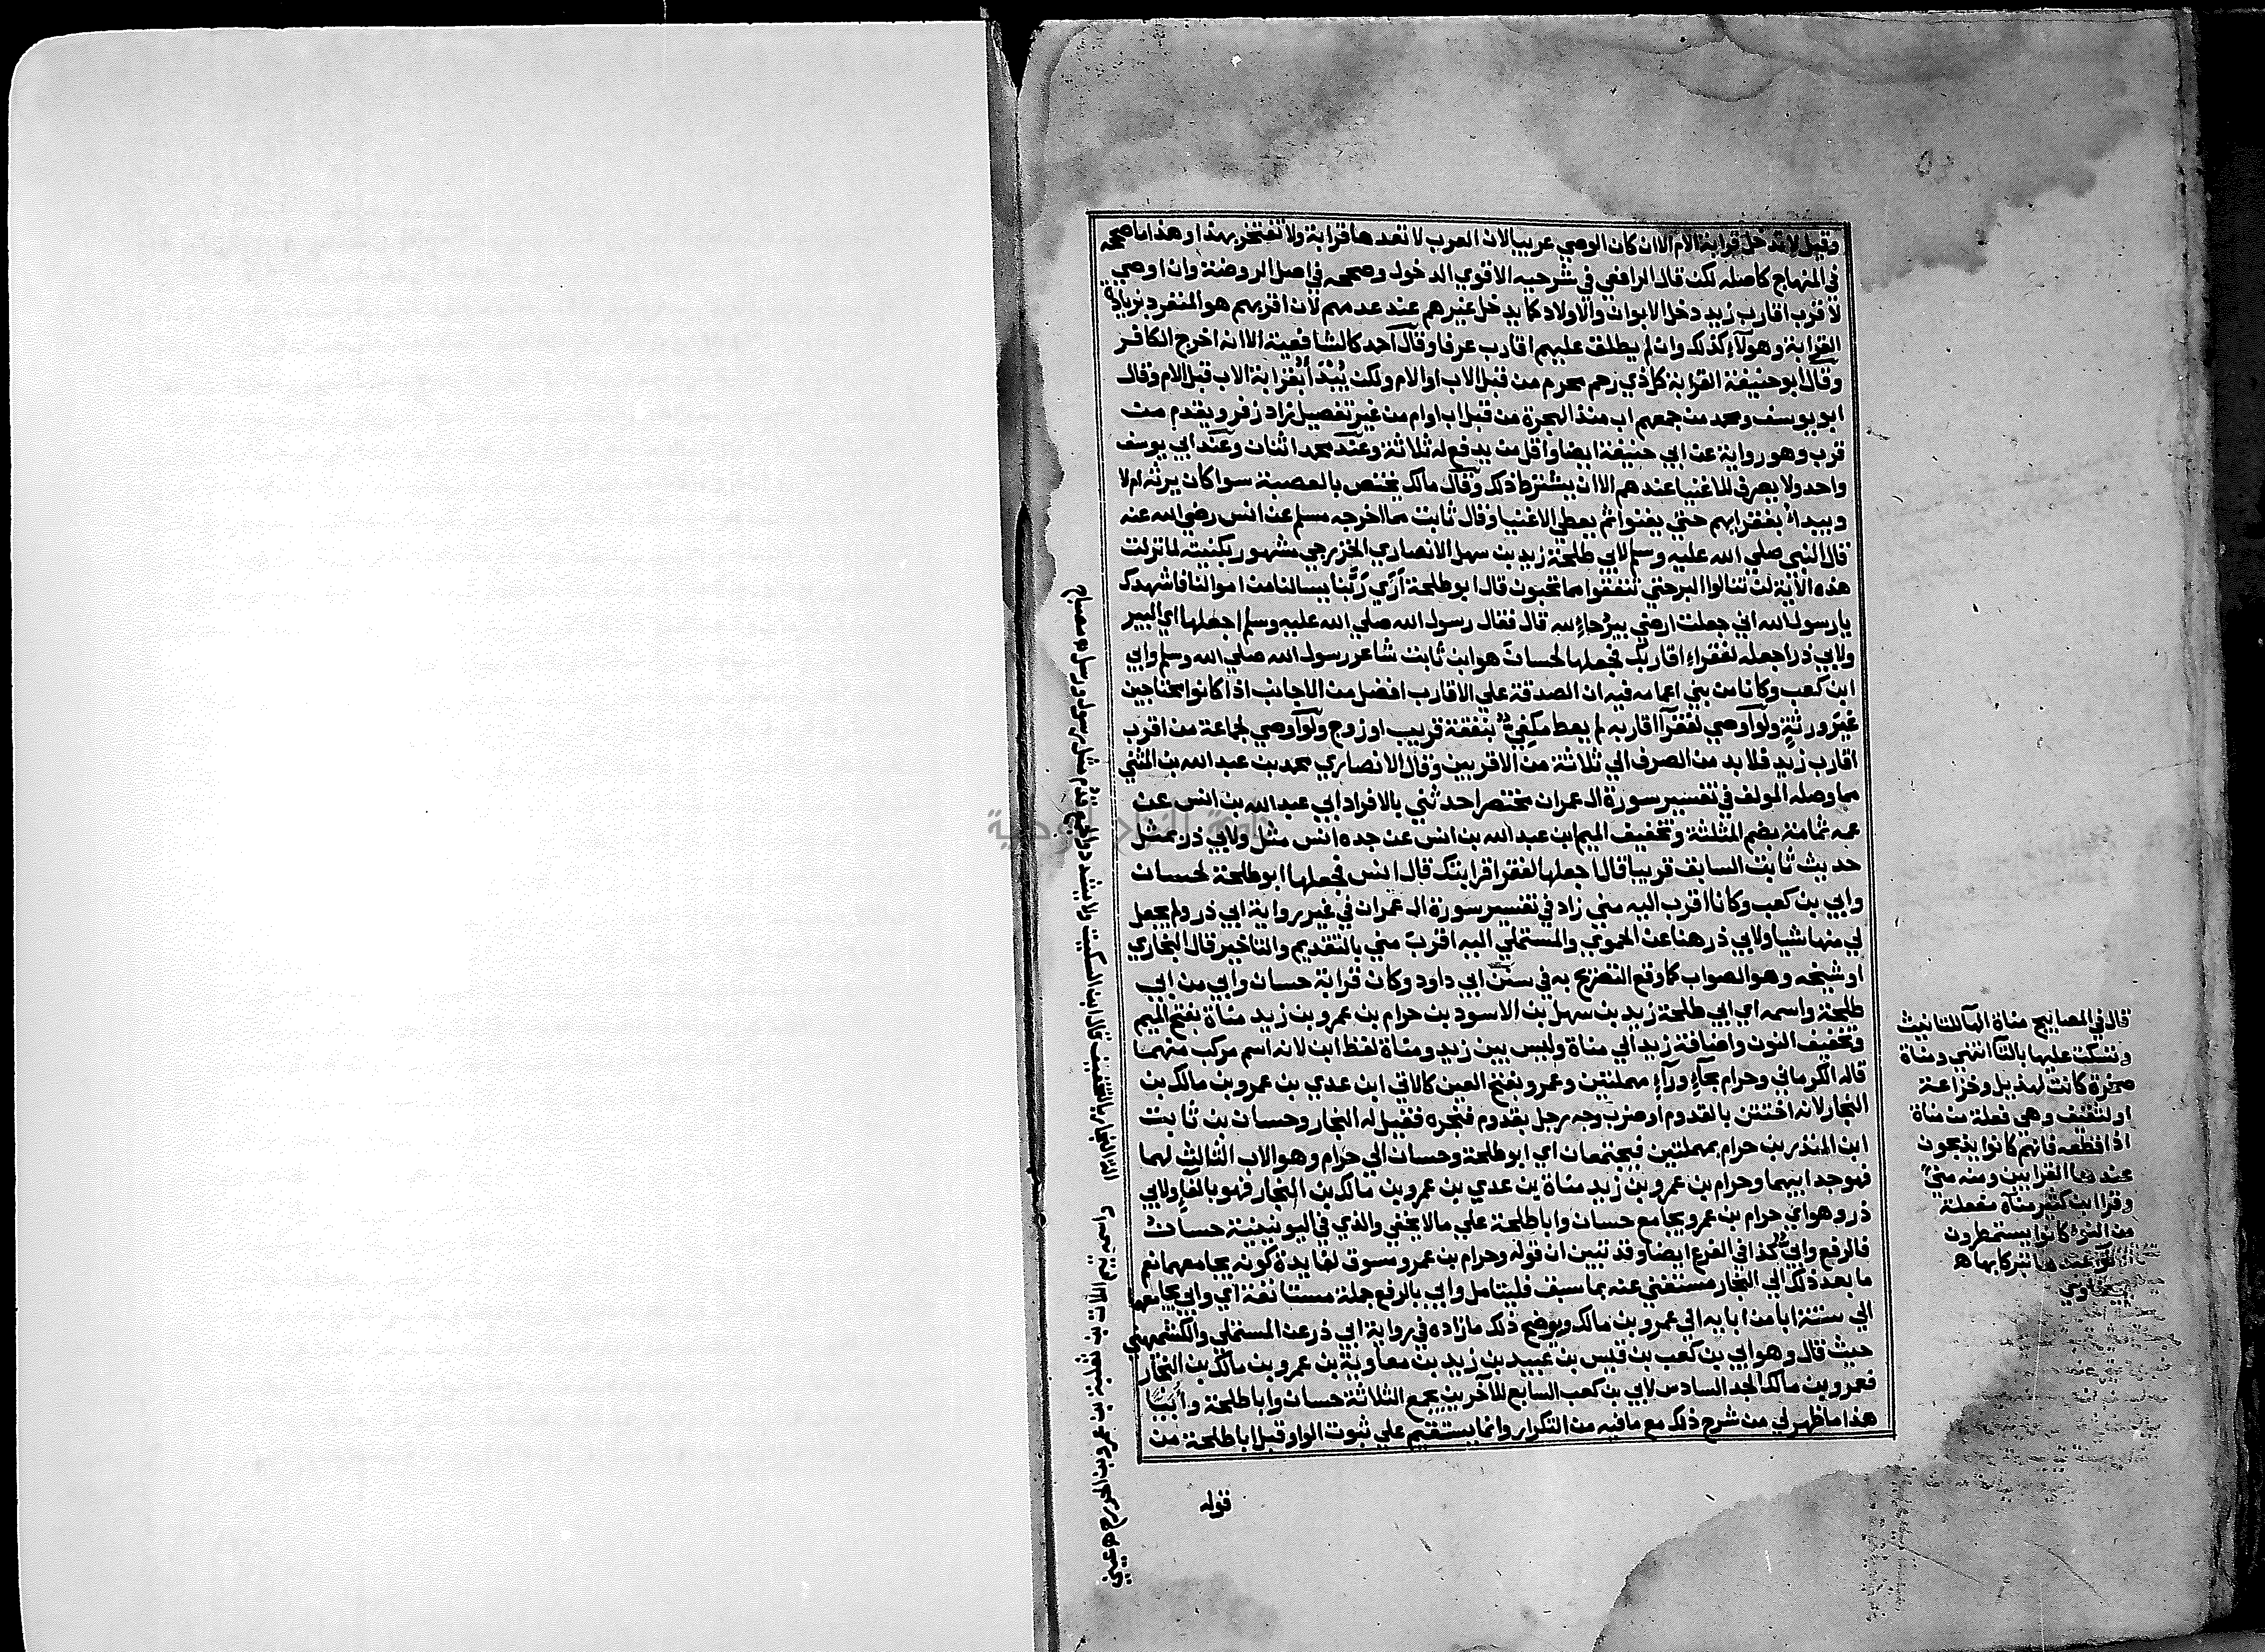 وقيل لا تدخل قرابة الام الا ان كان الوصي عربيا لان العرب لا تعدها قرابة ولا تفتخر بهذا وهذا ما صححه
في المنهاج كاصله لكن قال الرافعي في شرحيه الاقوي الدخول وصححه في اصل الروضة وان اوصي
لاقرب اقارب زيد دخل الابوان والاولاد كما يدخل غيرهم عند عدمهم لان اقربهم هو المنفرد بزيادة
القرابة وهولاء كذلك وان لم يطلق عليهم اقارب عرفا وقال احمد كالشافعية الا انه اخرج الكافر
وقال ابو حنيفة القرابة كل ذي رحم محرم من قبل الاب او الام ولكن يُبْدأ بقرابة الاب قبل الام وقال
ابو يوسف ومحمد من جمعهم اب منذ الهجرة من قبل اب او ام من غير تفصيل زاد زفر ويقدم من
قرب وهو رواية عن ابي حنيفة ايضا واقل من يدفع له ثلاثة وعند محمد اثنان وعند ابي يوسف
واحد ولا يصرف للاغنيا عندهم الا ان يشترط ذلك وقال مالك يختص بالعصبة سوا كان يرثه ام لا
ويبدا بفقرايهم حتي يغنوا ثم يعطي الاغنيا وقال ثابت مما اخرجه مسلم عن انس رضي الله عنه
قال النبي صلي الله عليه وسلم لابي طلحة زيد بن سهل الانصاري الخزرجي مشهور بكنيته لما نزلت
هذه الاية لن تنالوا البر حتي تنفقوا مما تحبون قال ابو طلحة أرَي رَبَّنا يسالنا من اموالنا فاشهدك
يا رسول الله اني جعلت ارضي بيرُحاءِ لله قال فقال رسول الله صلي الله عليه وسلم اجعلها اي البير
ولابي ذر اجعله لفقراء اقاربك فجعلها لحسان هو ابن ثابت شاعر رسول الله صلي الله وسلم وابي
ابن كعب وكانا من بني اعمامه فيه ان الصدقة علي الاقارب افضل من الاجانب اذا كانوا محتاجين
غير ورثةٍ ولو اوصي لفقرآ اقاربه لم يعط مكفي بنفقة قريب او زوج ولو اوصي لجماعة من اقرب
اقارب زيد فلا بد من الصرف الي ثلاثة من الاقربين وقال الانصاري محمد بن عبد الله بن المثني
مما وصله المولف في تفسير سورة ال عمران مختصرا حدثني بالافراد ابي عبد الله بن انس عن
عمه ثمامة بضم المثلثة وتخفيف الميم ابن عبد الله بن انس عن جده انس مثل ولابي ذر بمثل
حديث ثابت السابق قريبا قال اجعلها لفقرا قرابتك قال انس فجعلها ابو طلحة لحسان
وابي بن كعب وكانا اقرب اليه مني زاد في تفسير سورة ال عمران في غير رواية ابي ذر ولم يجعل
لي منها شيا ولابي ذر هنا عن الحموي والمستملي اليه اقرب مني بالتقديم والتاخير قال البخاري
او شيخه وهو الصواب كما وقع التصريح به في سنن ابي داود وكان قرابة حسان وابي من ابي
طلحة واسمه اي ابي طلحة زيد بن سهل بن الاسود بن حرام بن عمرو بن زيد مناة بفتح الميم
وتخفيف النون واضافة زيد الي مناة وليس بين زيد ومناة لفظ ابن لانه اسم مركب منهما
قاله الكرماني وحرام بحاءٍ وراءٍ مهملتين وعمرو بفتح العين كالاتي ابن عدي بن عمرو بن مالك بن
النجار لانه اختتن بالقدوم او ضرب وجه رجل بقدوم فنجره فقيل له النجار وحسان بن ثابت
ابن المنذر بن حرام بمهملتين فيجتمعان اي ابو طلحة وحسان الي حرام وهو الاب الثالث لهما
فهو جد ابيهما وحرام بن عمرو بن زيد مناة بن عدي بن عمرو بن مالك بن النجار فهو بالفاء ولابي
ذر وهو اي حرام بن عمرو يجامع حسان وابا طلحة علي مالا يخفي والذي في اليونينية حسانُ
فالرفع وابي كذا في الفرع ايضا وقد تبين ان قوله وحرام بن عمرو مسوق لفايدة كونه يجامعهما ثم
ما بعد ذلك الي النجار مستغني عنه بما سبق فليتامل وابي بالرفع جملة مستانفة اي وابي يجامعهما
الي ستة ابا من ابايه الي عمرو بن مالك ويوضح ذلك ما زاده في رواية ابي ذر عن المستملي والكشميهني
حيث قال وهو ابي بن كعب بن قيس بن عبيد بن زيد بن معاوية بن عمرو بن مالك بن النجار
فعمرو بن مالك الجد السادس لابي بن كعب السابع للآخرين يجمع الثلاثة حسان وابا طلحة وأُبَيًّا
هذا ما ظهر لي من شرح ذلك مع ما فيه من التكرار وانما يستقيم علي ثبوت الواو قبل ابا طلحة من
قوله
قال في المصابيح مناة الهآ للتانيث
وتسكت عليها بالتآ انتهي ومناة
صخرة كانت لهذيل وخزاعة
او لثقيف وهي فعلة من مناة
اذا قطعه فانهم كانوا يذبحون
عندها القرابين ومنه مني
وقرا ابن كثير مناة مفعلة
من النوء كانوا يستمطرون
عندها تبركا بها ه